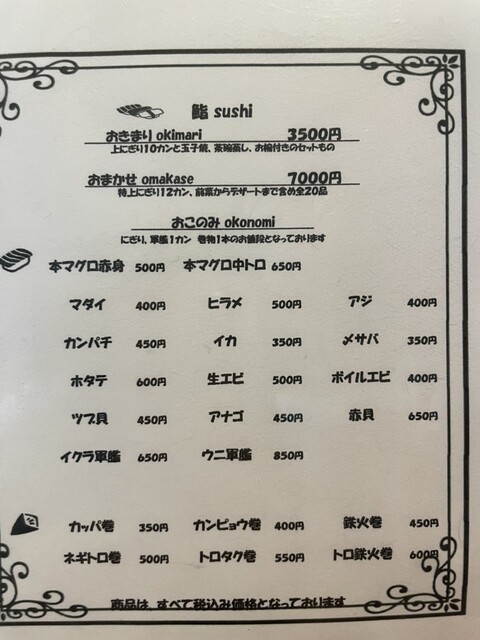 鮨 sushi
おきまり okimari 3500円
上にぎり10カンと玉子焼、茶碗蒸し、お椀付きのセットもの
おまかせ omakase 7000円
特上にぎり12カン、前菜からデザートまで含め全20品
おこのみ okonomi
にぎり、軍艦1カン 巻物1本のお値段となっております
本マグロ赤身 500円 本マグロ中トロ 650円
マダイ 400円 ヒラメ 500円 アジ 400円
カンパチ 450円 イカ 350円 〆サバ 350円
ホタテ 600円 生エビ 500円 ボイルエビ 400円
ツブ貝 450円 アナゴ 450円 赤貝 650円
イクラ軍艦 650円 ウニ軍艦 850円
カッパ巻 350円 カンピョウ巻 400円 鉄火巻 450円
ネギトロ巻 500円 トロタク巻 550円 トロ鉄火巻 600円
商品は、すべて税込み価格となっております